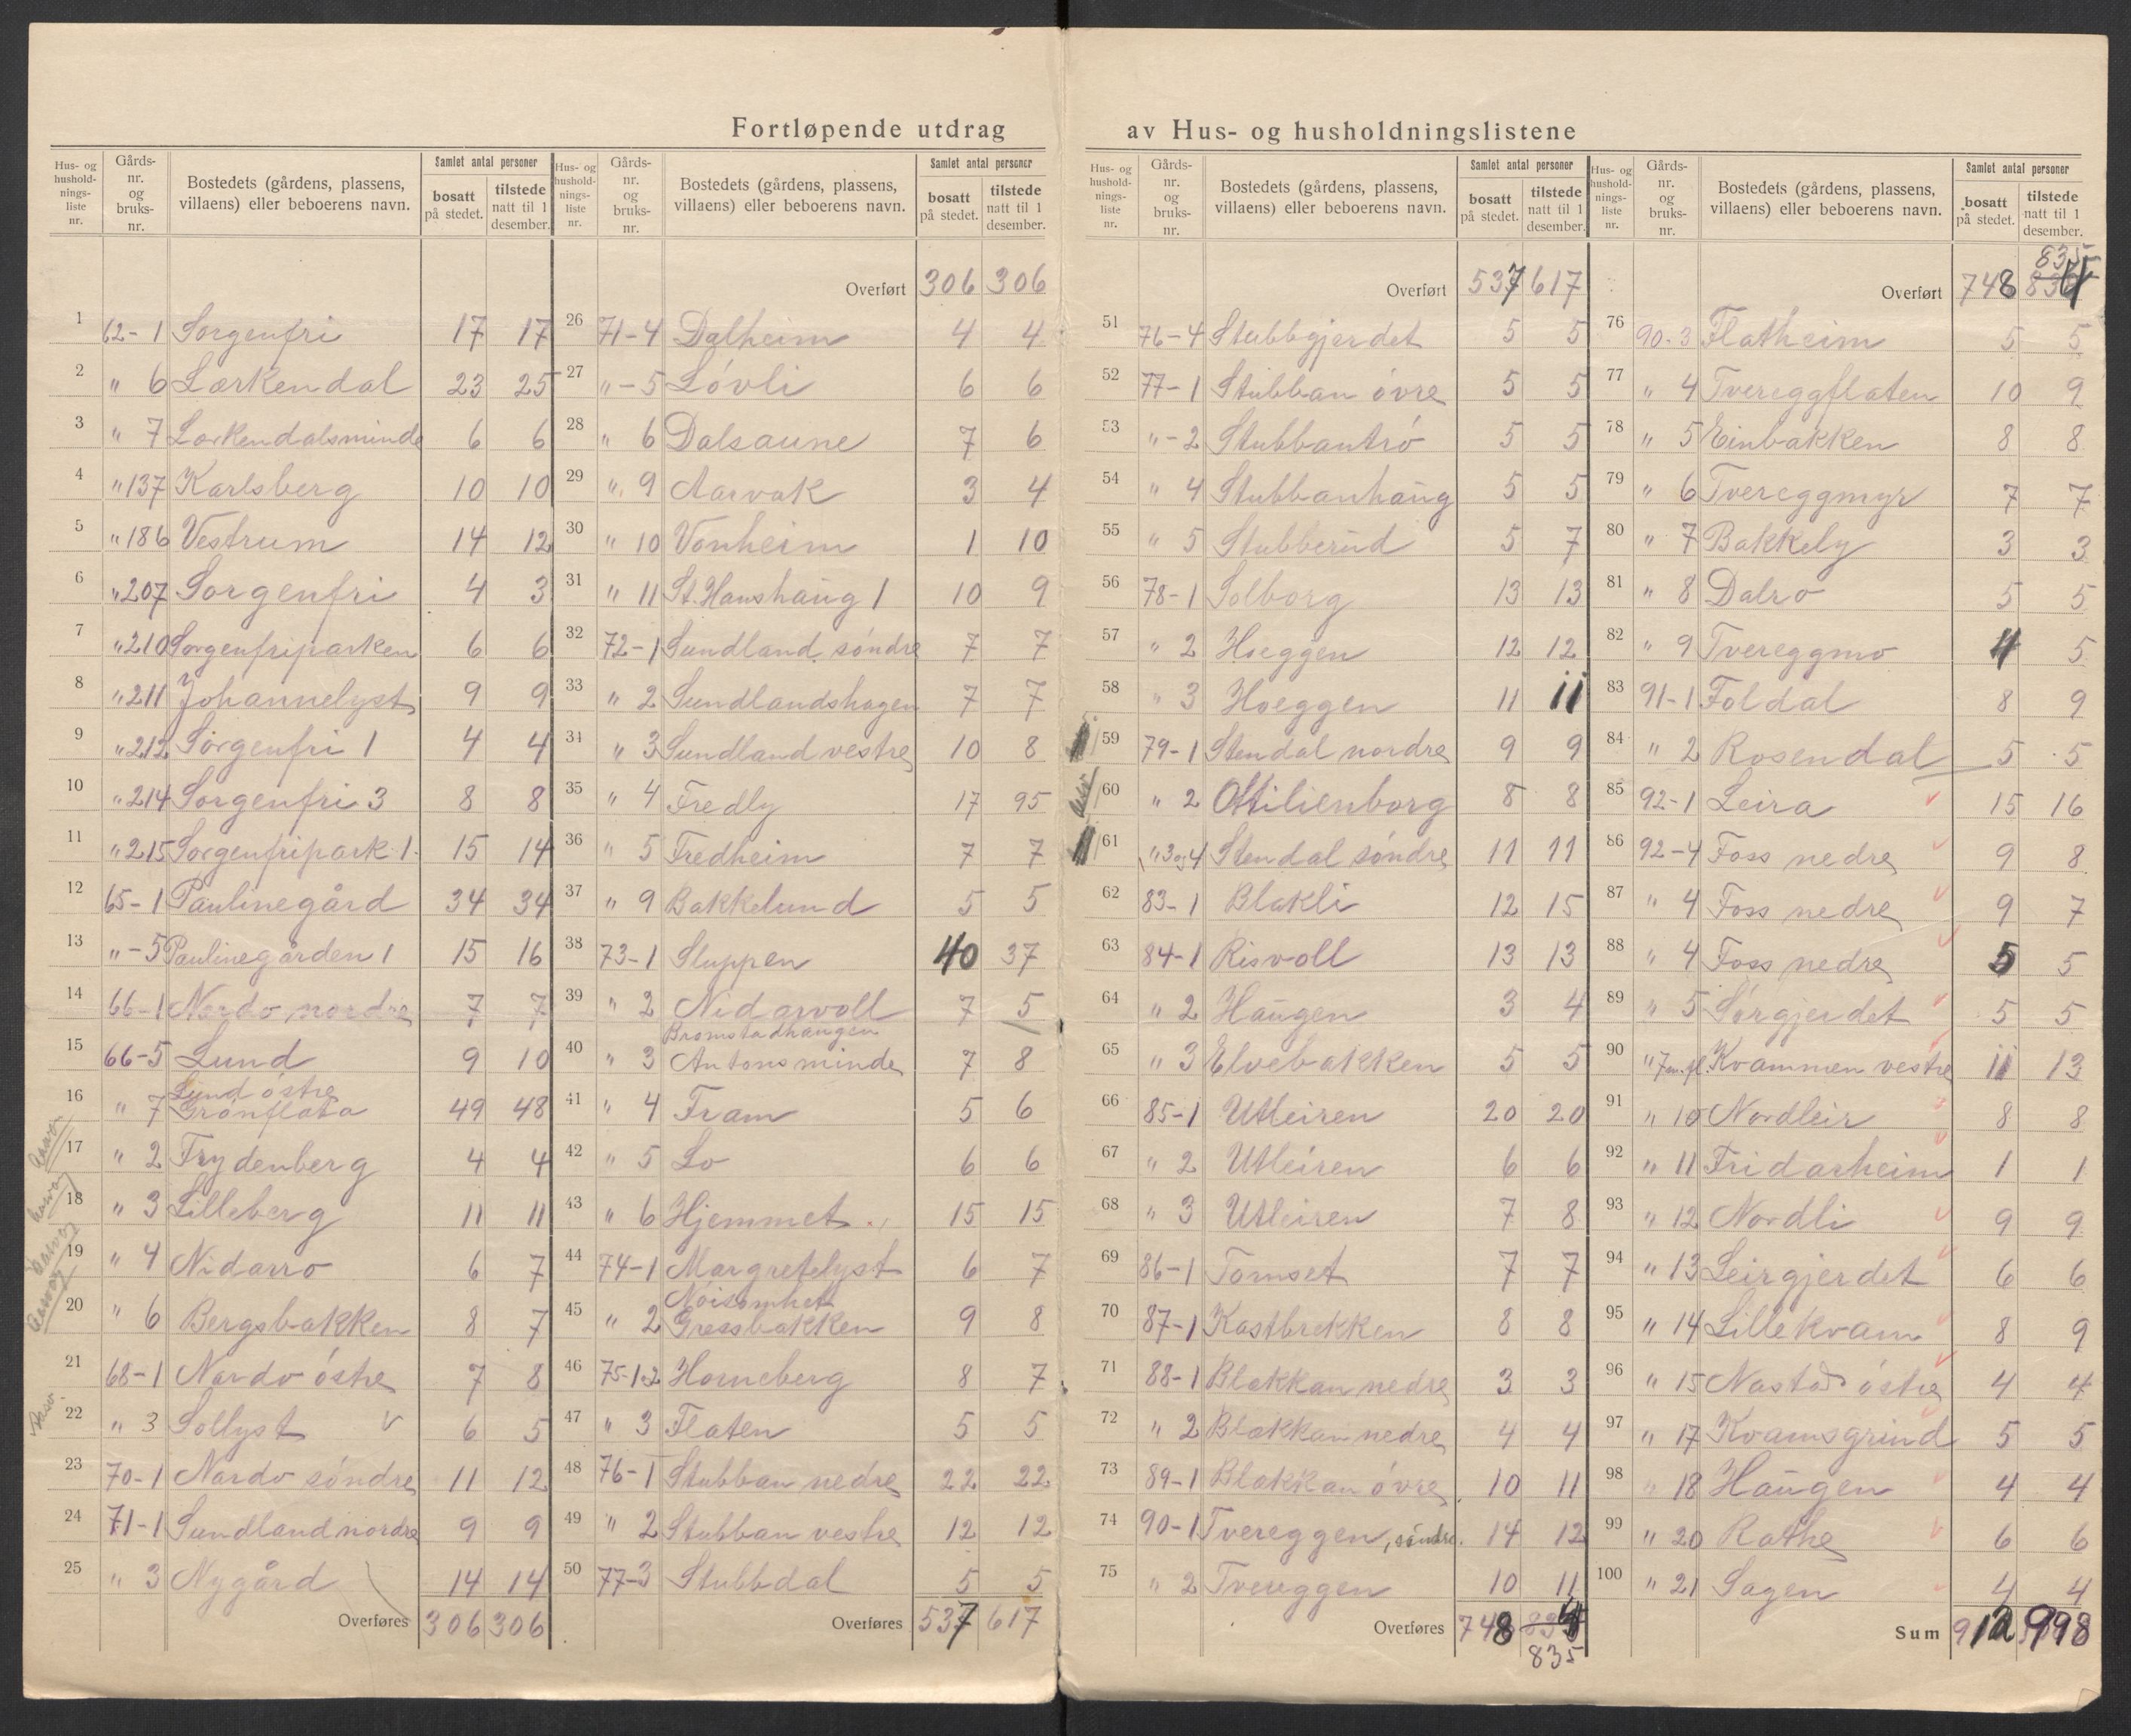 Fortløpende utdrag av Hus- og husholdningslistene
Hus- og husholdningsliste nr. Gårds-nr. og bruks-nr. Bostedets (gårdens, plassens, villaens) eller beboerens navn. Samlet antal personer bosatt på stedet. tilstede natt til 1 desember.
1 62-1 Sorgenfri 17 17
2 " 6 Lærkendal 23 25
3 " 7 Lærkendalsminde 6 6
4 " 137 Karlsberg 10 10
5 " 186 Vestrum 14 12
6 " 207 Sorgenfri 4 3
7 " 210 Sorgenfriparken 6 6
8 " 211 Johannelyst 9 9
9 " 212 Sorgenfri 1 4 4
10 " 214 Sorgenfri 3 8 8
11 " 215 Sorgenfripark 1. 15 14
12 65-1 Paulinegård 34 34
13 " -5 Paulinegården 1 15 16
14 66-1 Nardo nordre 7 7
15 66-5 Lund 9 10
16 " 7 Lund østre Grønflata 49 48
17 " 2 Frydenberg 4 4
18 " 3 Lilleberg 11 11
19 " 4 Nidarro 6 7
20 " 6 Bergsbakken 8 7
21 68-1 Nardo østre 7 8
22 " 3 Sollyst 6 5
23 70-1 Nardo søndre 11 12
24 71-1 Sundland nordre 9 9
25 " 3 Nygård 14 14
Overføres 306 306
Hus- og husholdningsliste nr. Gårds-nr. og bruks-nr. Bostedets (gårdens, plassens, villaens) eller beboerens navn. Samlet antal personer bosatt på stedet. tilstede natt til 1 desember.
Overført 306 306
26 71-4 Dalheim 4 4
27 " -5 Løvli 6 6
28 " 6 Dalsaune 7 6
29 " 9 Aarvak 3 4
30 " 10 Vonheim 1 10
31 " 11 St. Hanshaug 1 10 9
32 72-1 Sundland søndre 7 7
33 " 2 Sundlandshagen 7 7
34 " 3 Sundland vestre 10 8
35 " 4 Fredly 17 95
36 " 5 Fredheim 7 7
37 " 9 Bakkelund 5 5
38 73-1 Sluppen 40 37
39 " 2 Nidarvoll 7 5
40 " 3 Bromstadhaugen Antonsminde 7 8
41 " 4 Fram 5 6
42 " 5 Lo 6 6
43 " 6 Hjemmet 15 15
44 74-1 Margretelyst 6 7
45 " 2 Nøisomhet Gressbakken 9 8
46 75-1.2 Horneberg 8 7
47 " 3 Flaten 5 5
48 76-1 Stubban nedre 22 22
49 " 2 Stubban vestre 12 12
50 77-3 Stubbdal 5 5
Overføres 537 617
Hus- og husholdningsliste nr. Gårds-nr. og bruks-nr. Bostedets (gårdens, plassens, villaens) eller beboerens navn. Samlet antal personer bosatt på stedet. tilstede natt til 1 desember.
Overført 537 617
51 76-4 Stubbgjerdet 5 5
52 77-1 Stubban øvre 5 5
53 " -2 Stubbantrø 5 5
54 " 4 Stubbanhaug 5 5
55 " 5 Stubberud 5 7
56 78-1 Solborg 13 13
57 " 2 Hoeggen 12 12
58 " 3 Hoeggen 11 11
59 79-1 Stendal nordre 9 9
60 " 2 Ottilienborg 8 8
61 " 3og4 Stendal søndre 11 11
62 83-1 Blakli 12 15
63 84-1 Risvoll 13 13
64 " 2 Haugen 3 4
65 " 3 Elvebakken 5 5
66 85-1 Utleiren 20 20
67 " 2 Utleiren 6 6
68 " 3 Utleiren 7 8
69 86-1 Tomset 7 7
70 87-1 Kastbrekken 8 8
71 88-1 Blakkan nedre 3 3
72 " 2 Blakkan nedre 4 4
73 89-1 Blakkan øvre 10 11
74 90-1 Tvereggen, søndre. 14 12
75 " 2 Tvereggen 10 11
Overføres 748
835
Hus- og husholdningsliste nr. Gårds-nr. og bruks-nr. Bostedets (gårdens, plassens, villaens) eller beboerens navn. Samlet antal personer bosatt på stedet. tilstede natt til 1 desember.
835
Overført 748
76 90-3 Flatheim 5 5
77 " 4 Tvereggflaten 10 9
78 " 5 Einbakken 8 8
79 " 6 Tvereggmyr 7 7
80 " 7 Bakkely 3 3
81 " 8 Dalro 5 5
82 " 9 Tvereggmo 4 5
83 91-1 Foldal 8 9
84 " 2 Rosendal 5 5
85 92-1 Leira 15 16
86 92-4 Foss nedre 9 8
87 " 4 Foss nedre 9 7
88 " 4 Foss nedre 5 5
89 " 5 Sørgjerdet 5 5
90 " 7 m. fl. Kvammen vestre 11 13
91 " 10 Nordleir 8 8
92 " 11 Fridarheim 1 1
93 " 12 Nordli 9 9
94 " 13 Leirgjerdet 6 6
95 " 14 Lillekvam 8 9
96 " 15 Nastad østre 4 4
97 " 17 Kvamsgrind 5 5
98 " 18 Haugen 4 4
99 " 20 Rathe 6 6
100 " 21 Sagen 4 4
Sum 912 998